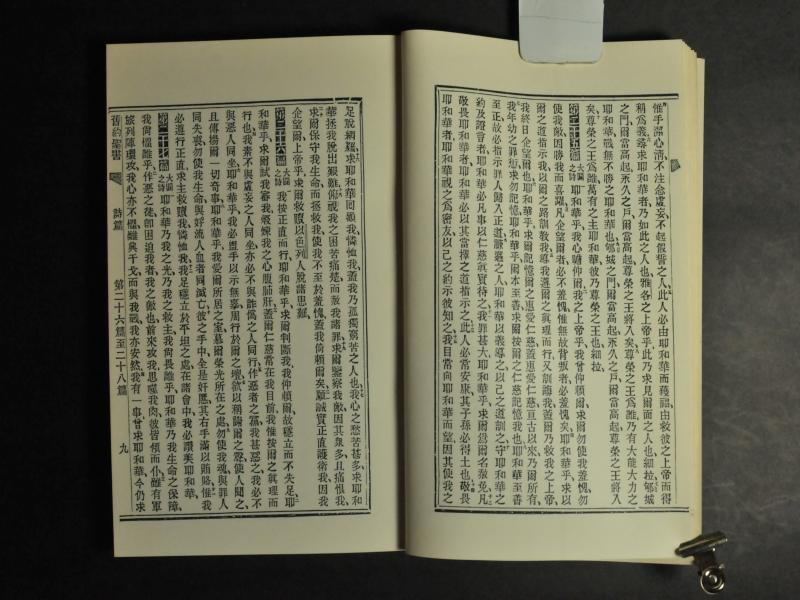 惟手潔心清不注念虛妄不起假誓之人此人必由耶和華而獲福由救彼之上帝而得
稱爲義尋求耶和華者乃如此之人也雅各之上帝乎此乃求見爾面之人也細拉郇城
之門爾當高起永久之戶爾當高起尊榮之王將入矣尊榮之王爲誰乃有大能大力之
耶和華戰無不勝之耶和華也郇城之門爾當高起永久之戶爾當高起尊榮之王將入
矣尊榮之王爲誰萬有之主耶和華彼乃尊榮之王也細拉
第二十五篇 大闢之詩 耶和華乎我心瞻仰爾我之上帝乎我曾仰賴爾求爾勿使我羞愧勿
使我敵因勝我而喜躍凡企望爾者必不羞愧惟無故背叛者必羞愧矣耶和華乎求以
爾之道指示我以爾之路訓敎我導我遵爾之眞理而行又訓誨我蓋爾乃救我之上帝
我終日企望爾耶和華乎求爾記憶爾之憐愛仁慈蓋憐愛仁慈亘古以來乃爾所有
我年幼之罪愆求勿記憶耶和華乎爾本至善求爾按爾之仁慈記憶我也耶和華至善
至正故必指示罪人歸入正道謙遜之人耶和華以義導之以己之道訓之守耶和華之
約及證言者耶和華必凡事以仁慈眞實待之我罪甚大耶和華乎求爾爲爾名赦免凡
敬畏耶和華者耶和華必以其當擇之道指示之此人必常安康其子孫必得土也敬畏
耶和華者耶和華視之爲密友以己之約示彼知之我目常向耶和華而望因其使我之
足脫網羅求耶和華回顧我憐恤我蓋我乃孤獨窮苦之人也我心之愁苦甚多求耶和
華拯我脫出艱難俯視我之困苦痛楚而赦我諸罪求爾鑒察我敵因其衆多且痛恨我
求爾保守我生命而拯救我使我不至於羞愧蓋我倚賴爾矣願誠實正直護衞我因我
企望爾上帝乎求爾救贖以色列人脫諸患難
第二十六篇 大闢之詩 我按正直而行耶和華乎求爾判斷我我仰賴爾故穩立而不失足耶
和華乎求爾試我審我煅煉我之心腹肺肝蓋爾仁慈常在我目前我惟按爾之眞理而
行也我素不與虛妄之人同坐亦必不與詭僞之人同行作惡者之羣我甚惡之我必不
與惡人同坐耶和華乎我必盥手以示無辜周行於爾之壇欲以稱謝爾之聲使人聞之
且傳揚爾一切奇事耶和華乎我愛爾所居之室慕爾榮光所在之處勿使我魂與罪人
同失喪勿使我生命與好流人血者同滅亡彼之手中全是奸惡其右手滿以賄賂惟我
必遵行正直求主救贖我憐恤我我足穩立於平坦之處在諸會中我必讚美耶和華
第二十七篇 大闢之詩 耶和華乃我之光乃我之救主我尚畏誰乎耶和華乃我生命之保障
我尚懼誰乎作惡之徒卽困迫我者我之敵也前來攻我思噬我肉彼皆傾而仆雖有軍
旅列陣環攻我心亦不懼雖興干戈而與我戰我亦安然我有一事曾求耶和華今仍求
舊約聖書 詩篇 第二十六篇至二十八篇 九